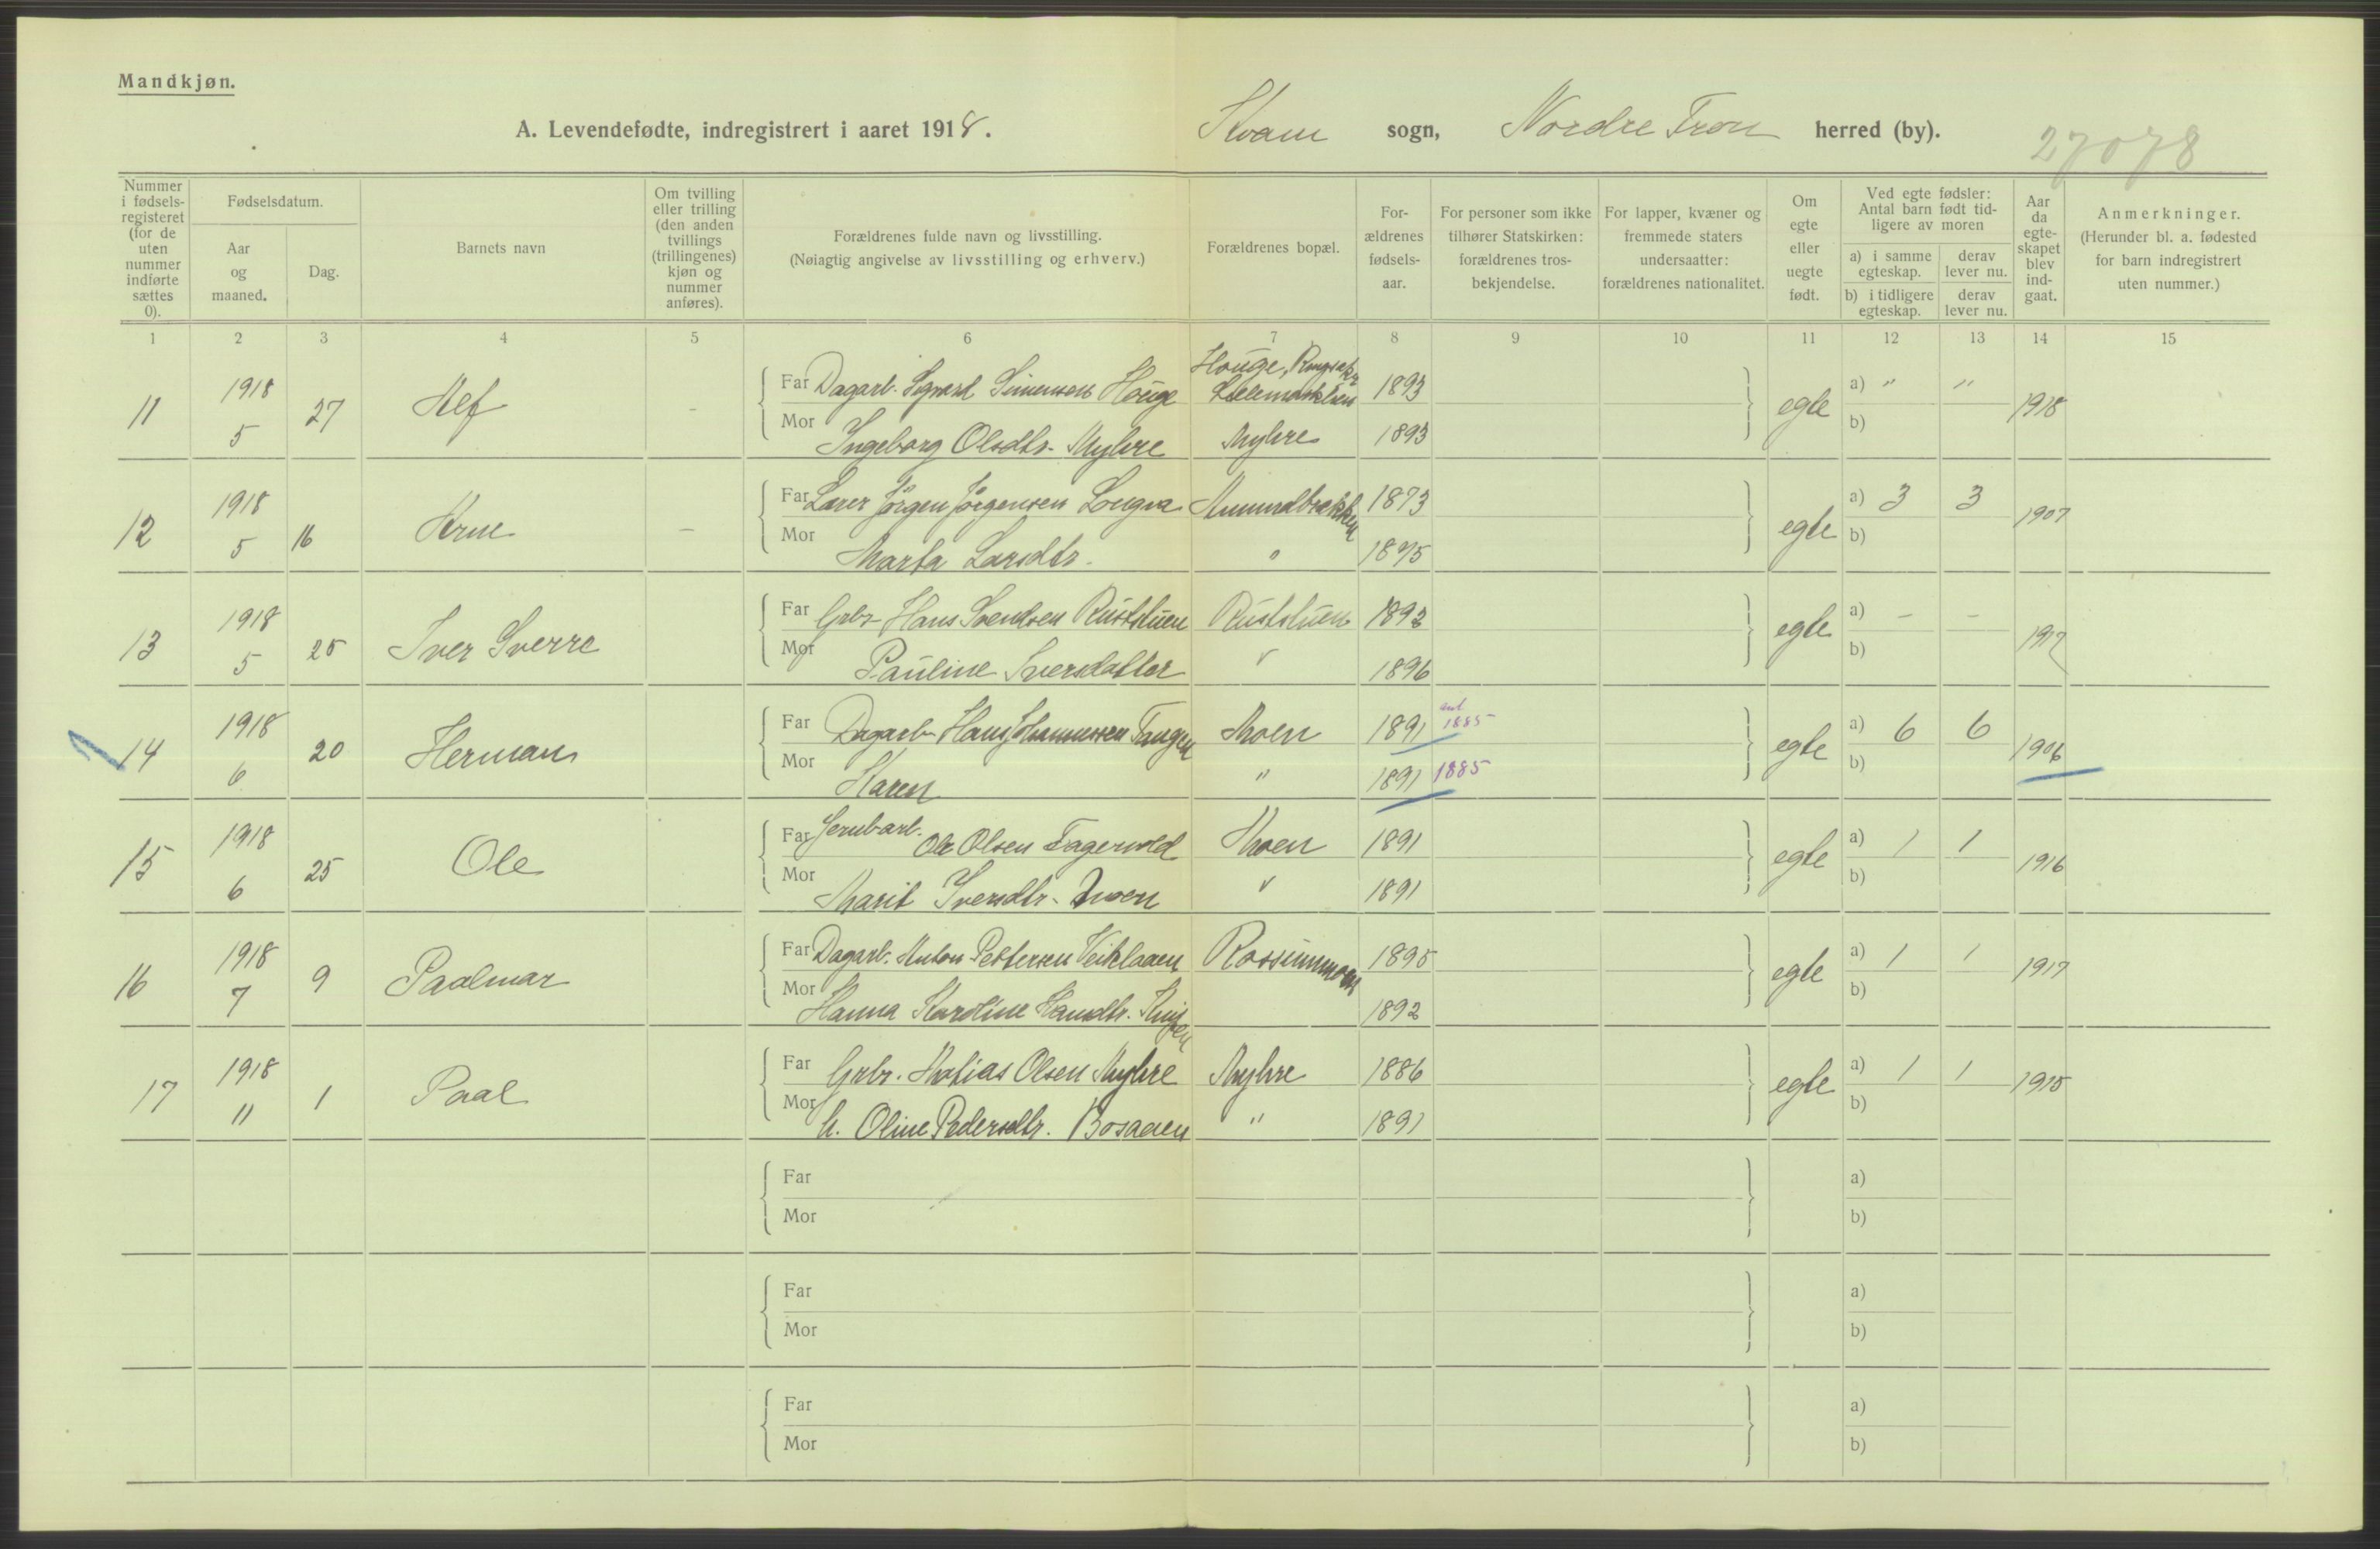 Mandkjøn.
A. Levendefødte, indregistrert i aaret 1918.
Kvam sogn, Nordre Fron herred (by).
27078
Nummer i fødsels-registeret (for de uten nummer indførte sættes 0).
Fødselsdatum.
Aar og maaned.
Dag.
Barnets navn
Om tvilling eller trilling (den anden tvillings (trillingenes) kjøn og nummer anføres).
Forældrenes fulde navn og livsstilling.
(Nøiagtig angivelse av livsstilling og erhverv.)
Forældrenes bopæl.
For-ældrenes fødsels-aar.
For personer som ikke tilhører Statskirken: forældrenes tros-bekjendelse.
For lapper, kvæner og fremmede staters undersaatter: forældrenes nationalitet.
Om egte eller uegte født.
Ved egte fødsler: Antal barn født tid-ligere av moren
a) i samme egteskap.
derav lever nu.
b) i tidligere egteskap.
derav lever nu.
Aar da egte-skapet blev ind-gaat.
Anmerkninger.
(Herunder bl. a. fødested for barn indregistrert uten nummer.)
1 2 3 4 5 6 7 8 9 10 11 12 13 14 15
11 1918 5 27 Alf -
Far Dagarb. Sigvard Simensen Houge Houge, Ringsaker 1893 egte a) " " 1918
Mor Ingeborg Olsdtr. Myhre Myhre 1893 b)
12 1918 5 16 Arne -
Far Lærer Jörgen Jörgensen Longva Amundbakken 1873 egte a) 3 3 1907
Mor Marta Larsdtr. " 1875 b)
13 1918 5 25 Iver Sverre
Far Grbr. Hans Svendsen Ruststuen Ruststuen 1892 egte a) - - 1917
Mor Pauline Iversdatter v 1896 b)
14 1918 6 20 Herman
Far Dagarb. Hans Johannessen Tangen Moen 1891 1885 egte a) 6 6 1906
Mor Karen " 1891 1885 b)
15 1918 6 25 Ole
Far Jernbarb. Ole Olsen Fagervold Moen 1891 egte a) 1 1 1916
Mor Marit Iversdtr. Moen v 1891 b)
16 1918 7 9 Paalmar
Far Dagarb. Anton Pettersen Veiklaaen Rossummoen 1895 egte a) 1 1 1917
Mor Hanna Karoline Hansdtr. 1892 b)
17 1918 11 1 Paal
Far Grbr. Matias Olsen Myhre Myhre 1886 egte a) 1 1 1915
Mor h. Oline Pedersdtr. Bosaaen " 1891 b)
Far a)
Mor b)
Far a)
Mor b)
Far a)
Mor b)